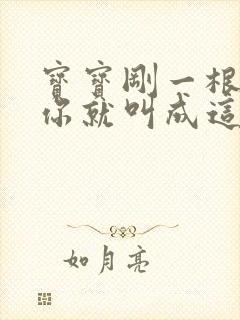 寶寶剛一根
你就叫成這
如月亮